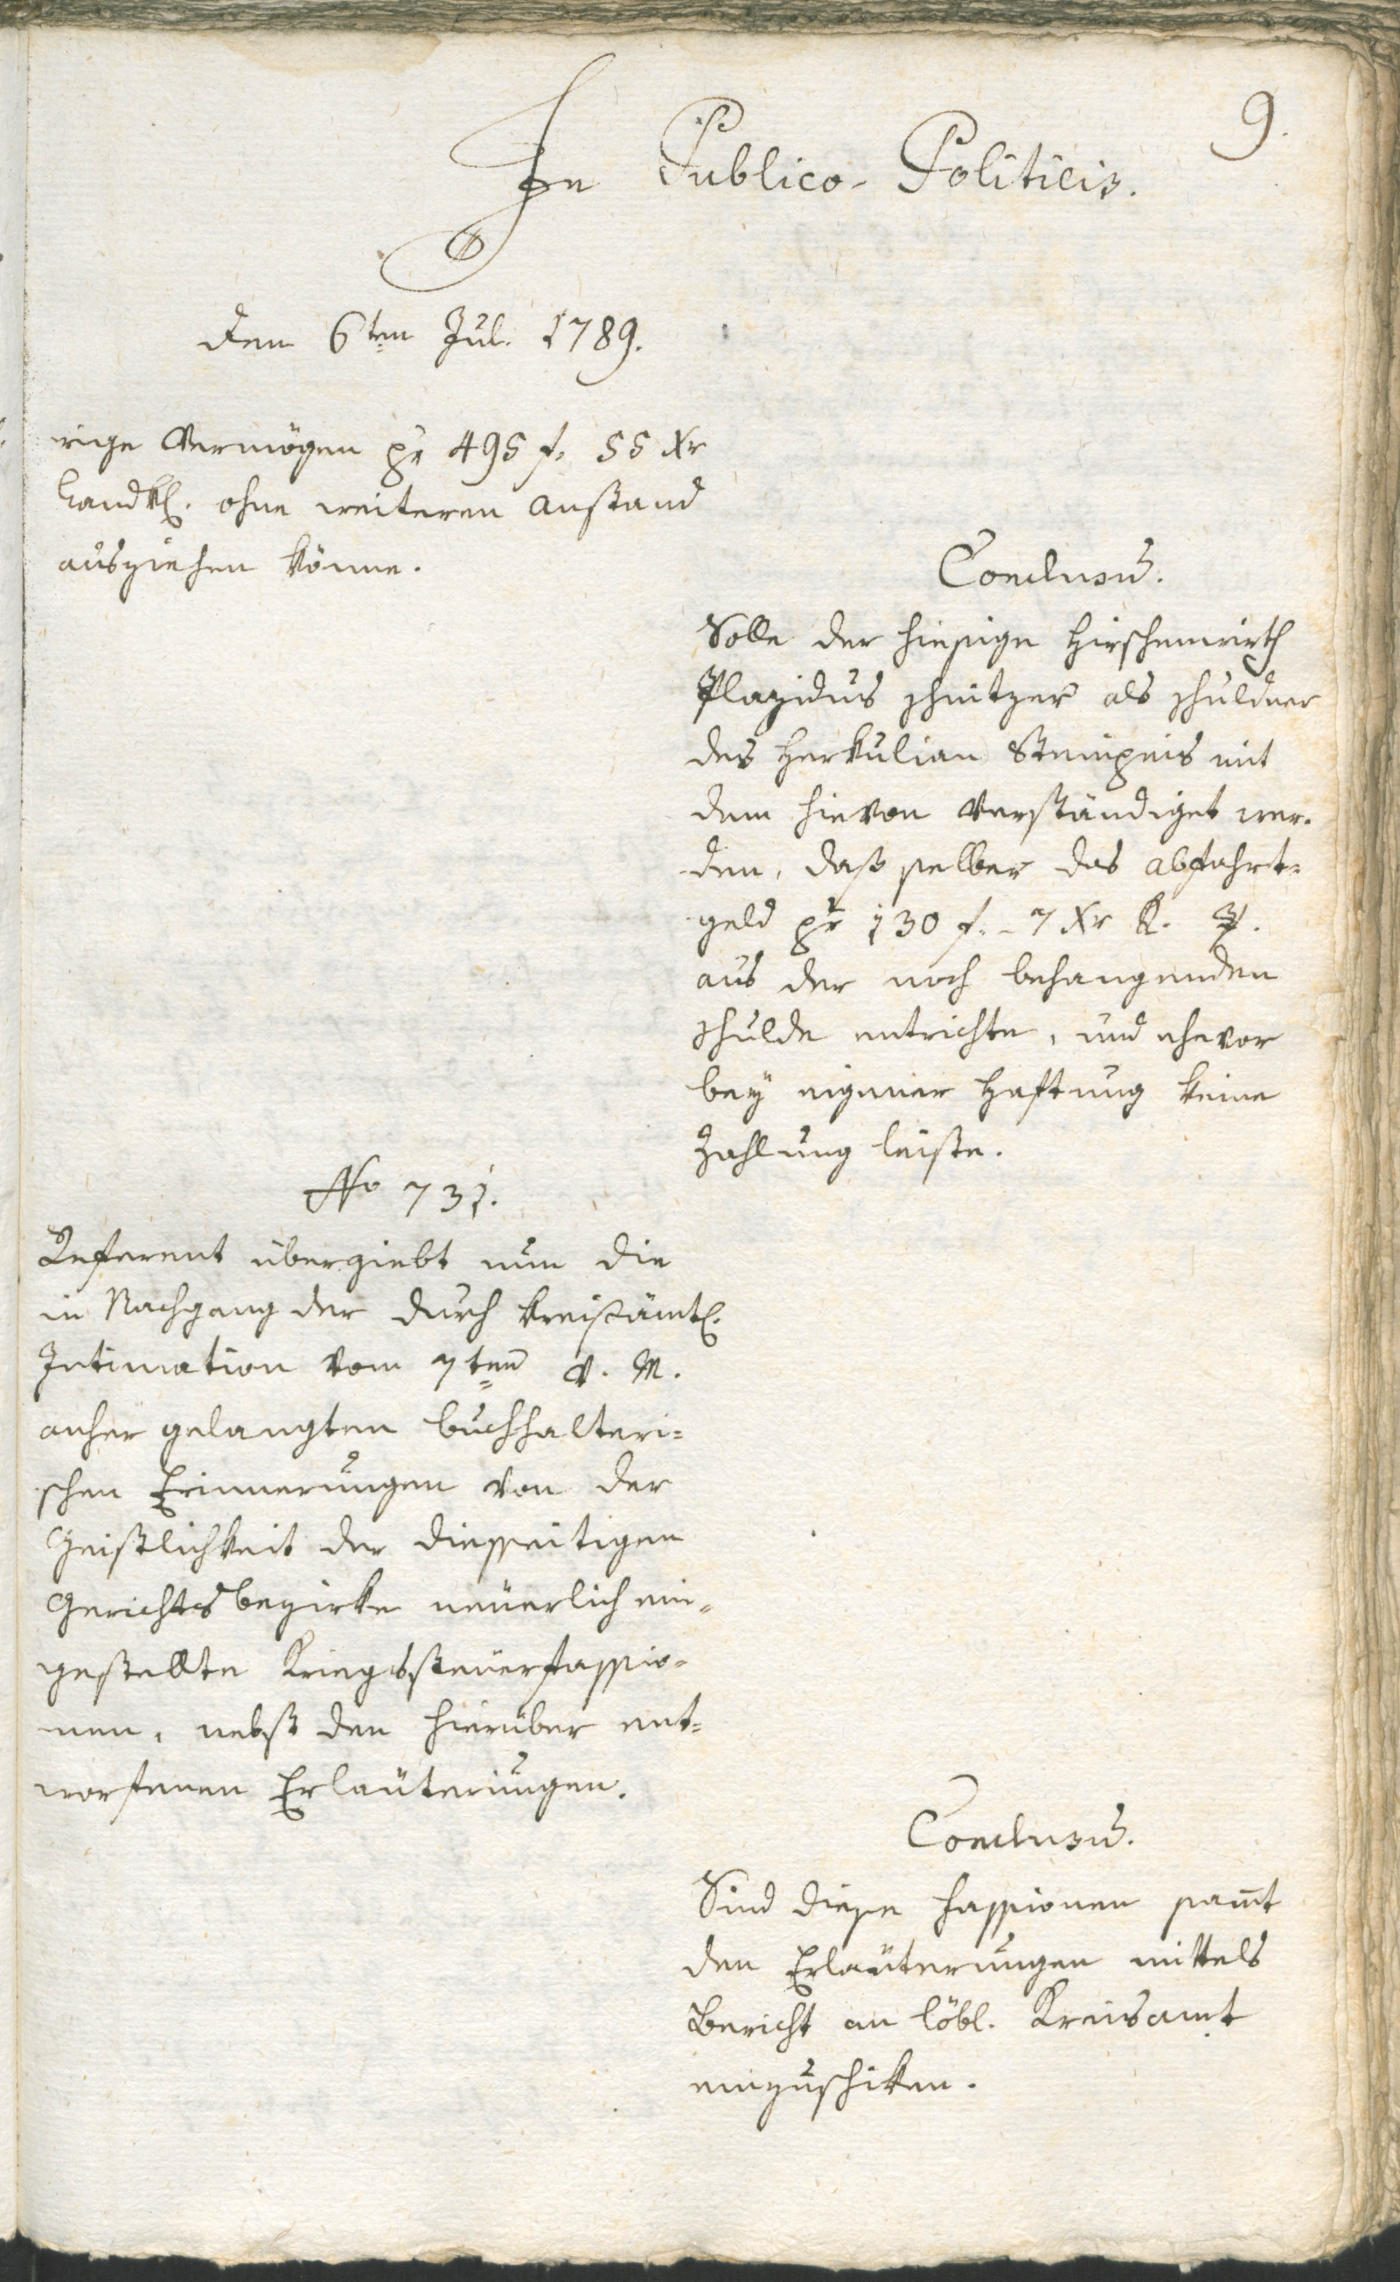 9.
In Publico-Politicis.
Den 6ten Jul. 1789.
rige Vermögen pr 495 f. 55 Xr
ohne weiteren Anstand
ausziehen könne.
Conclusum.
Solle der hiesige Hirschenwirth
Plazidus Schnitzer als Schuldner
des Herkulian mit
dem hievon verständiget wer-
den, daß selber das Abfahrt-
geld pr 130 f. - 7 Xr R. W.
aus der noch behangenden
Schulde entrichte, und ehevor
bey eigener Haftung keine
Zahlung leiste.
No 731.
Referent übergiebt nun die
in Nachgang der durch kreisämtl.
Intimation vom 7ten v. M.
anher gelangten buchhalteri-
schen Erinnerungen von der
Geistlichkeit der diesseitigen
Gerichtsbezirke neuerlich ein-
gestellte Kriegssteuerfassio-
nen, nebst den hierüber ent-
worfenen Erläuterungen.
Conclusum.
Sind diese Fassionen samt
den Erläuterungen mittels
Bericht an löbl. Kreisamt
einzuschiken.